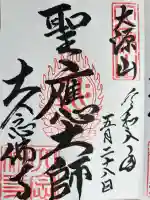 大源山
令和六年
五月二十八日
聖應大師
大念佛寺